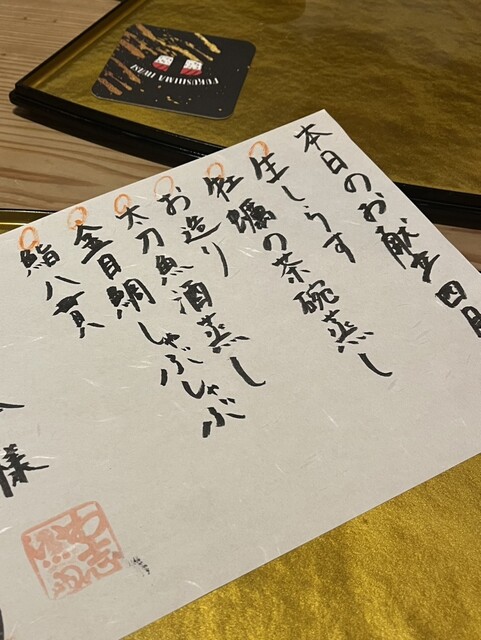 本日のお献立 四月
生しらす
牡蠣の茶碗蒸し
お造り
太刀魚酒蒸し
金目鯛しゃぶしゃぶ
鮨八貫
様
FUKUSHIMA IWASI